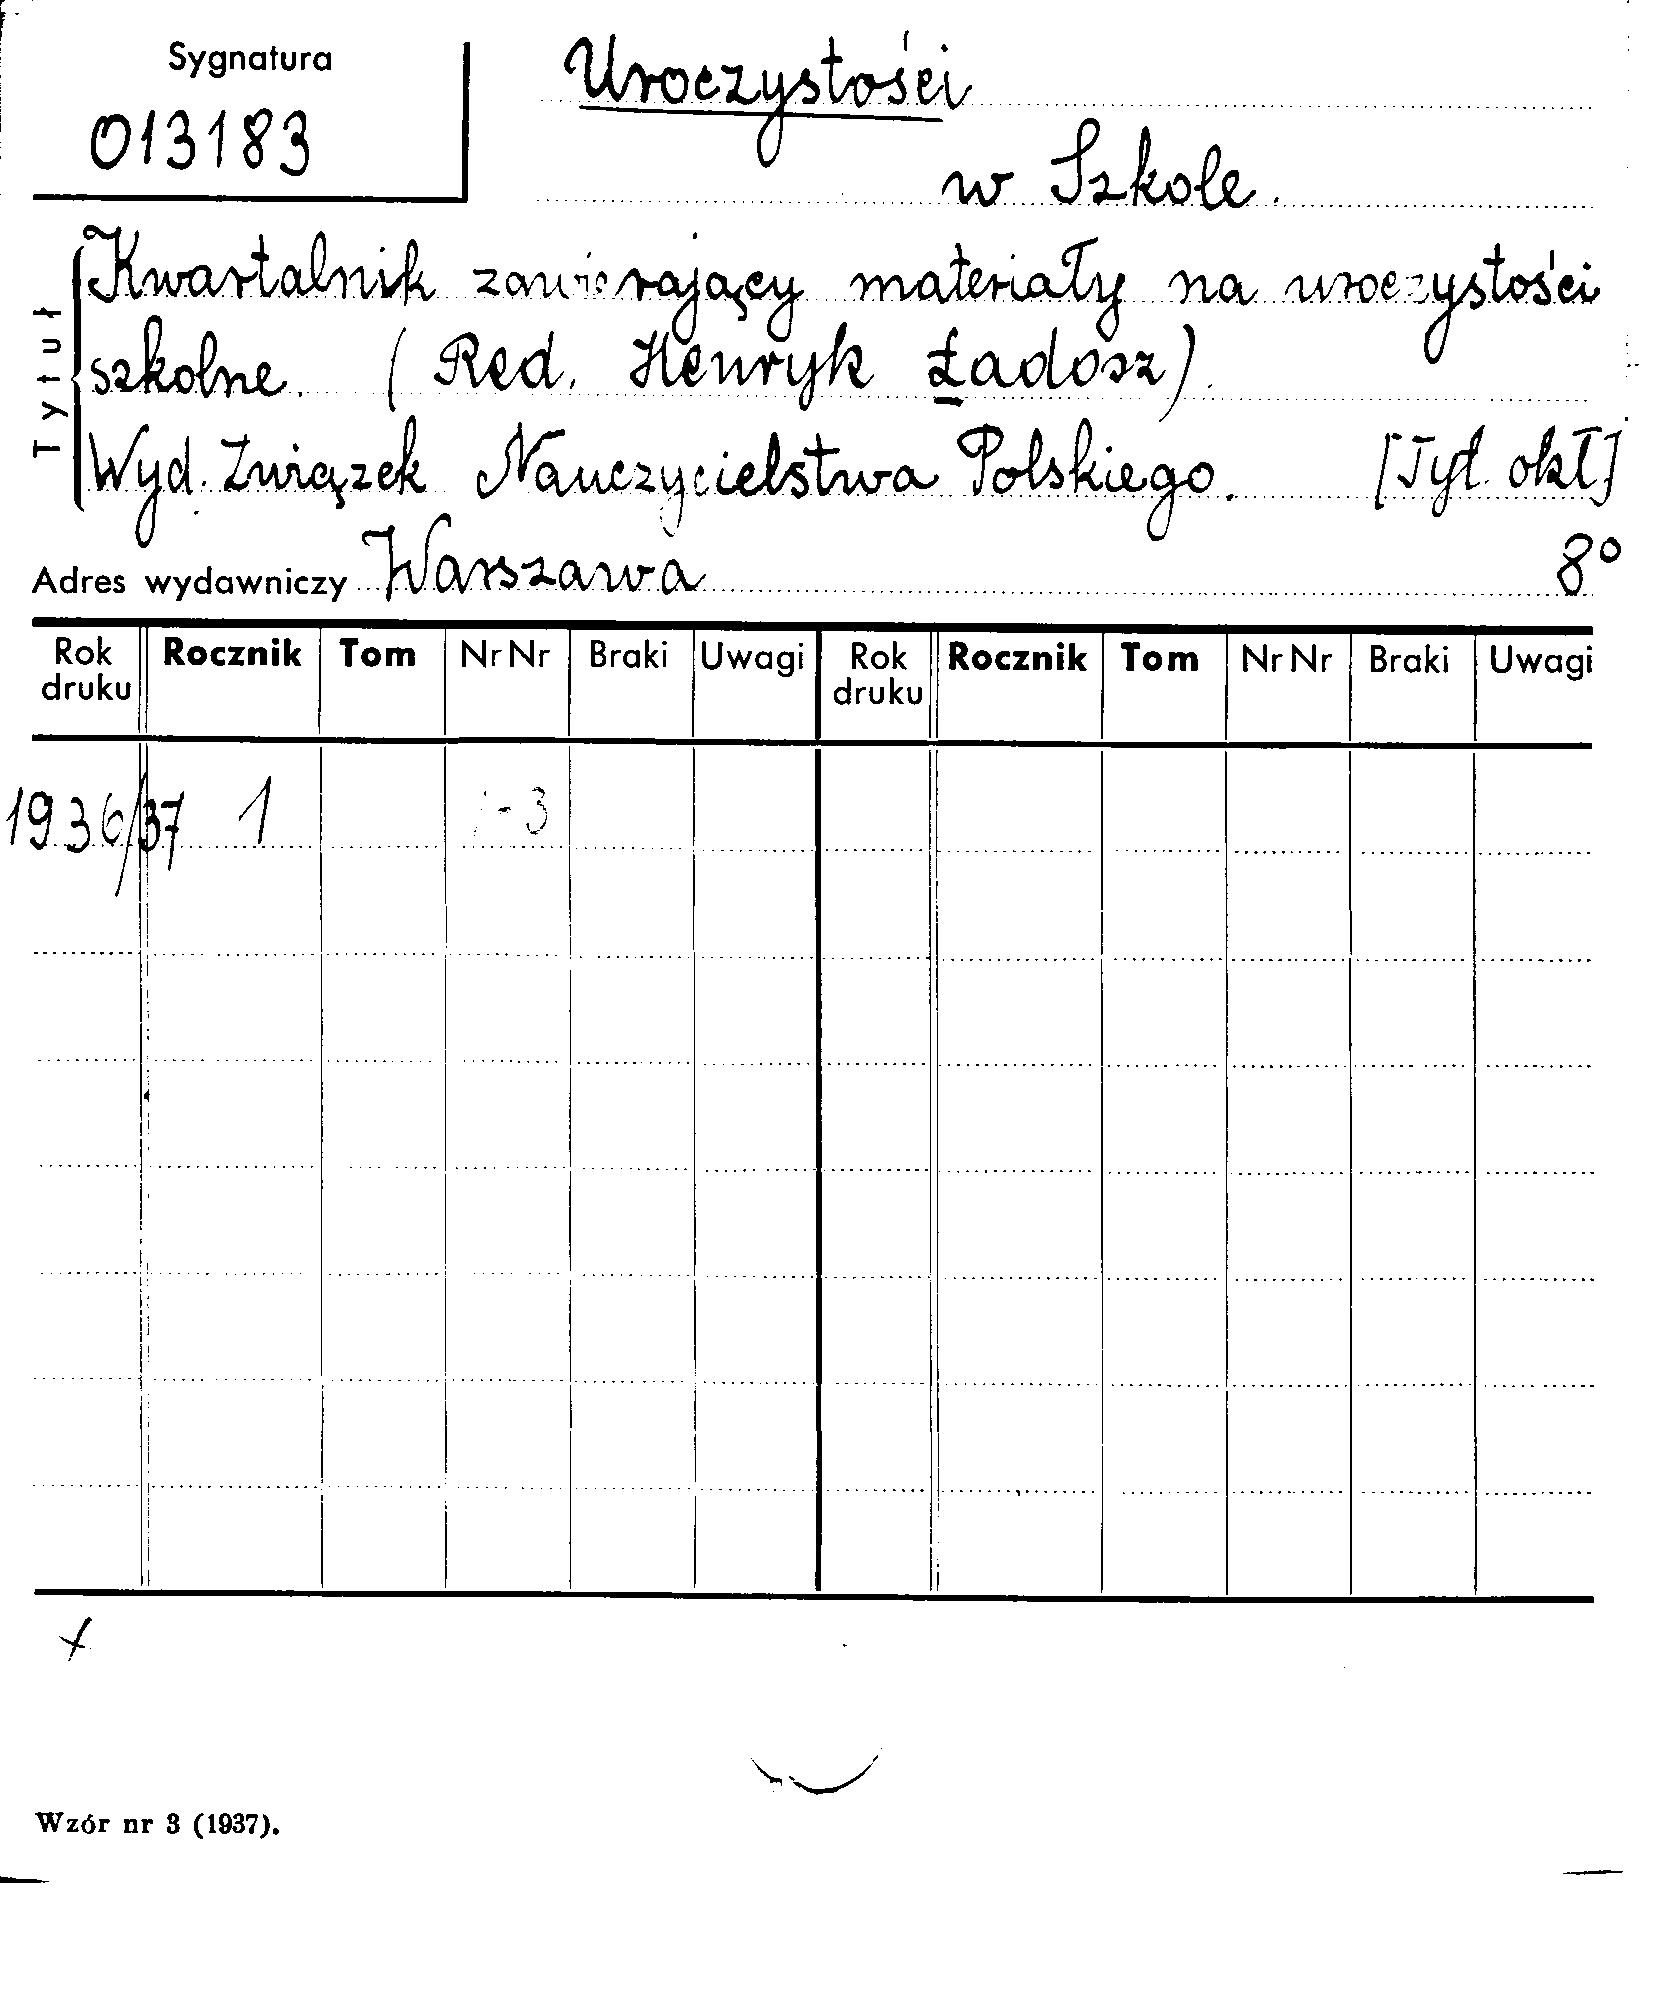 Sygnatura
013183
Uroczystości
w Szkole.
Tytuł
Kwartalnik zawierający materiały na uroczystości
szkolne. (Red. Henryk Ładosz).
Wyd. Związek Nauczycielstwa Polskiego. [Tyt. okł]
Adres wydawniczy Warszawa 8°
Rok druku Rocznik Tom Nr Nr Braki Uwagi Rok druku Rocznik Tom Nr Nr Braki Uwagi
1936/37 1 1-3
Wzór nr 3 (1937).